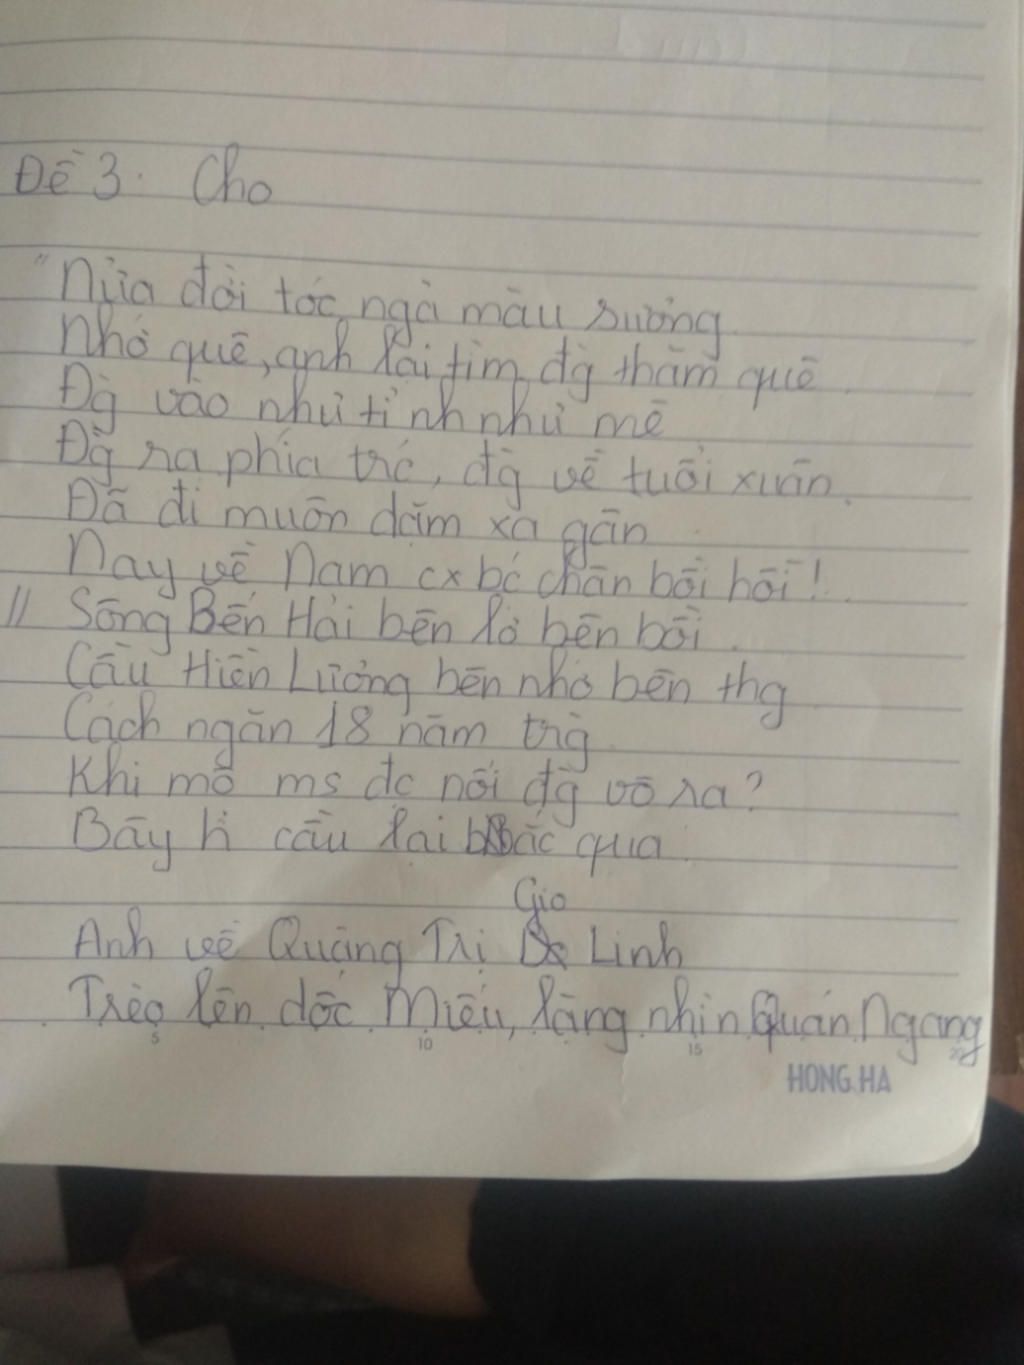 Đề 3. Cho
"Nửa đời tóc ngả màu sương
Nhớ quê, anh lại tìm đg̀ thăm quê
Đg̀ vào như tỉnh như mê
Đg̀ ra phía trc, đg̀ về tuổi xuân.
Đã đi muôn dặm xa gần
Nay về Nam cx bć chân bồi hồi!
// Sông Bến Hải bên lở bên bồi.
Cầu Hiền Lương bên nhớ bên thg
Cách ngăn 18 năm trg̀
Khi mô ms đc nối đg̀ vô ra?
Bây h cầu lại bắc qua
Gio
Anh về Quảng Trị Linh
Trèo lên dốc Miếu, lặng nhìn Quán Ngang
5 10 15 20
HONG HA